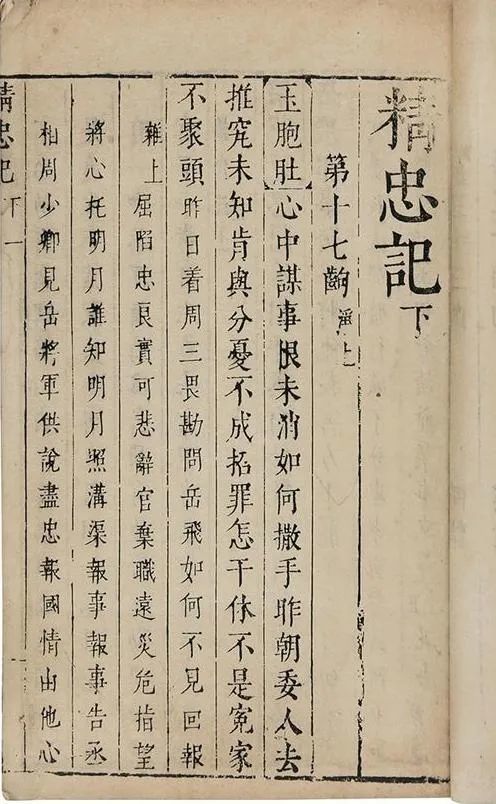 精忠記下
第十七齣 淨上
玉胞肚心中謀事恨未消如何撒手昨朝委人去
推究未知肯與分憂不成招罪怎干休不是冤家
不聚頭昨日着周三畏勘問岳飛如何不見回報
雜上屈陷忠良實可悲辭官棄職遠災危指望
將心托明月誰知明月照溝渠報事報事告丞
相周少卿見岳將軍供說盡忠報國情由他心
精忠記下 一